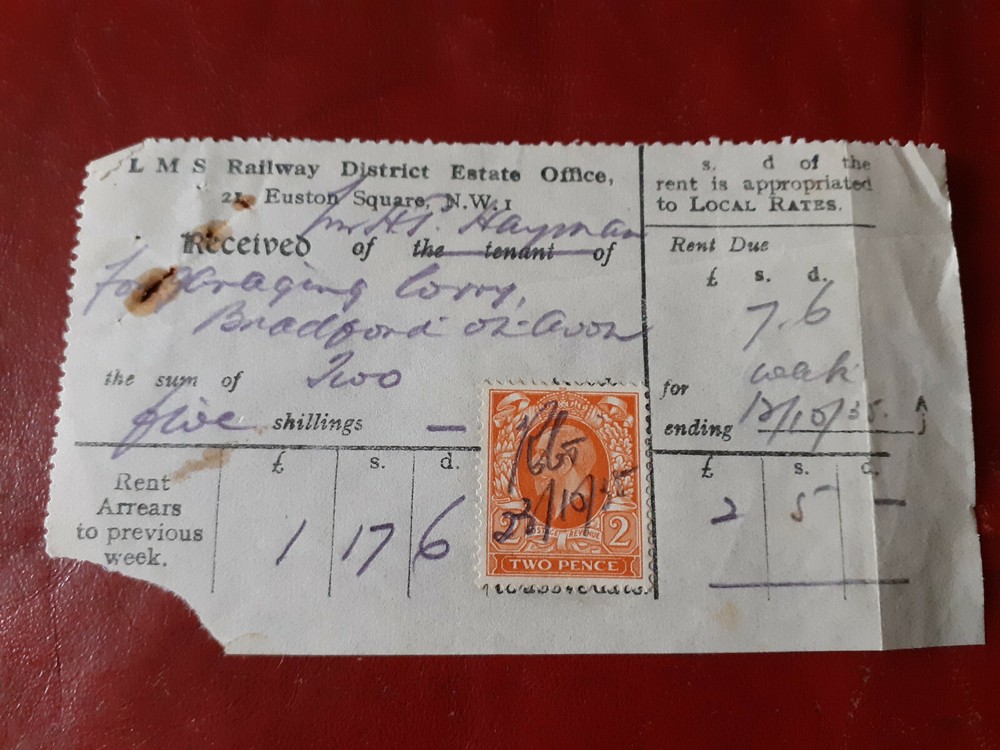 L M S Railway District Estate Office,
21, Euston Square, N.W.1
Mr H. Hayman
Received of the tenant of
for garaging lorry,
Bradford on Avon
the sum of Two
five shillings —
Rent Arrears to previous week.
£ s. d.
1 17 6
23/10/35
2 POSTAGE REVENUE 2
TWO PENCE
s. d of the
rent is appropriated
to LOCAL RATES.
Rent Due
£ s. d.
7. 6
for week
ending 12/10/35.
£ s. d.
2 5 —